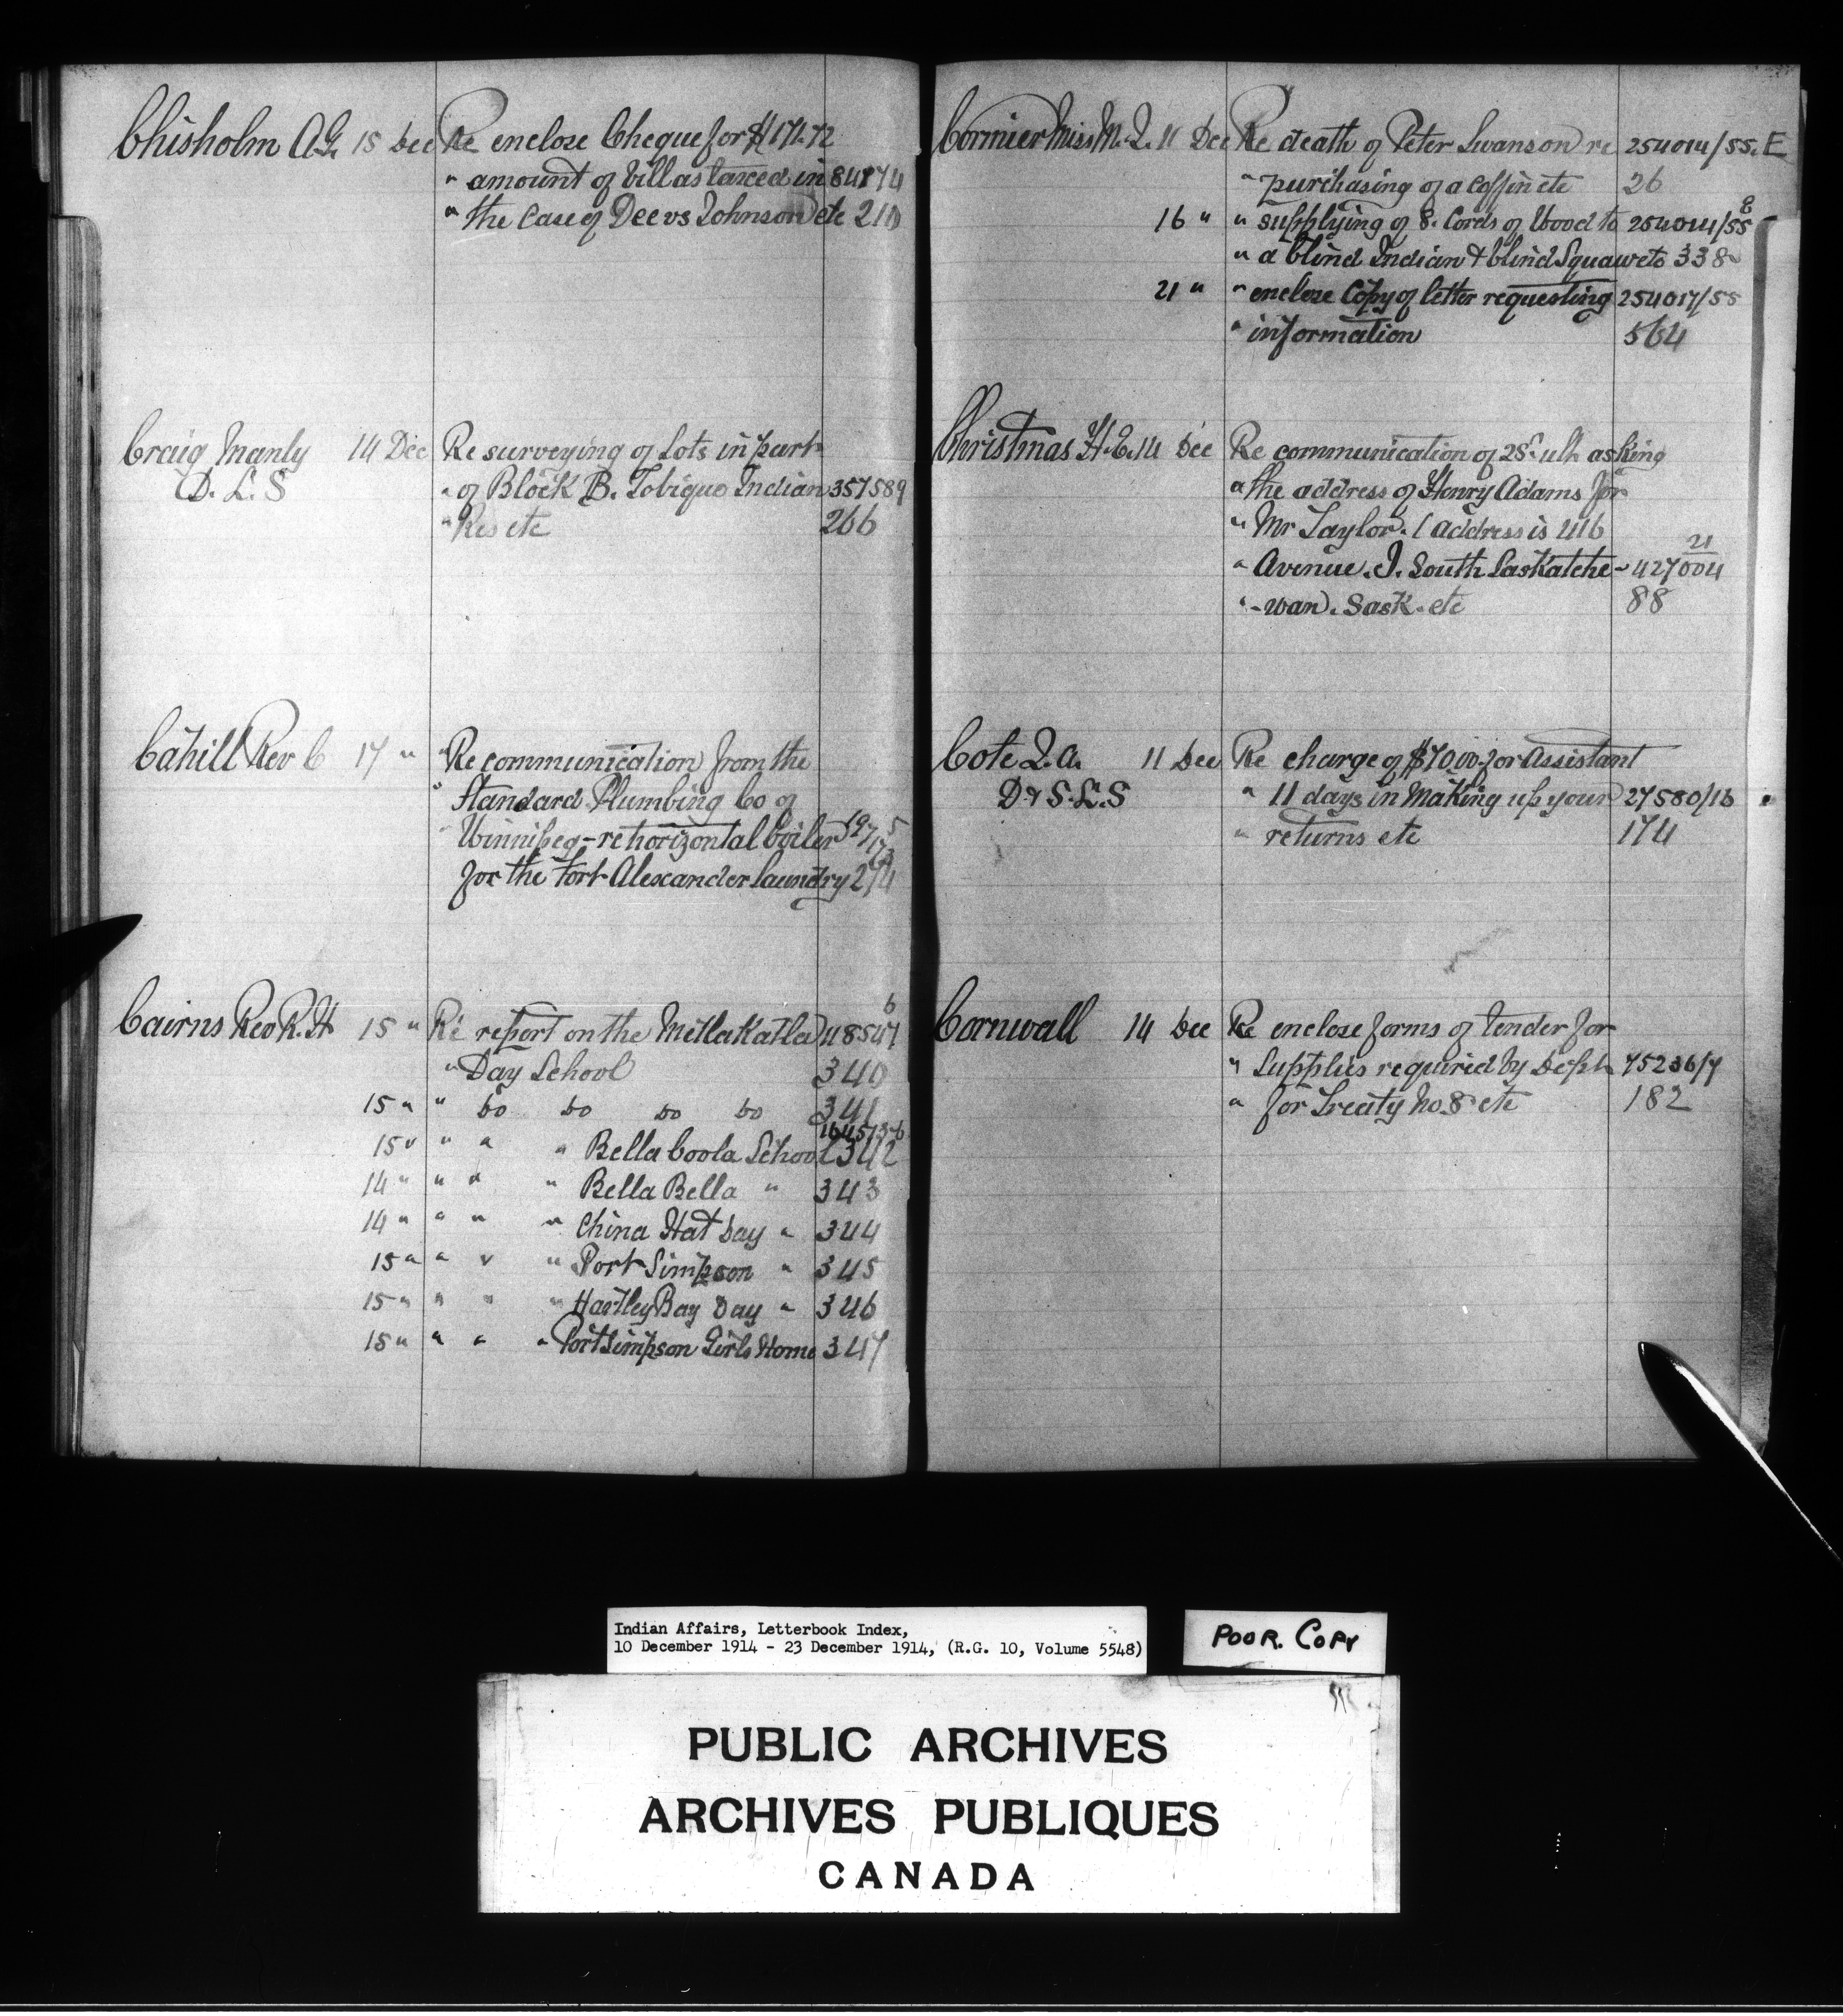 Chisholm A.G. 15 Dec Re enclose Cheque for $171.72
" amount of bill as taxed in 84174
" the Case of Dee vs Johnson etc 210
Craig Manly 14 Dec Re surveying of Lots in part
D. L. S " of Block B. Tobique Indian 357589
" Res etc 266
Cahill Rev C 17 " Re communication from the
" Standard Plumbing Co of
" Winnipeg - re horizontal boiler
for the Fort Alexander laundry 274
Cairns Rev R. H 15 " Re report on the Metlakatla 48547
6
" Day School 340
15 " " Do Do Do Do 341
164573-6
15 " " " " Bella Coola School 342
14 " " " " Bella Bella " 343
14 " " " " China Hat Day " 344
15 " " " " Port Simpson " 345
15 " " " " Hartley Bay Day " 346
15 " " " " Port Simpson Girls Home 347
Cormier Miss M. J. 11 Dec Re death of Peter Swanson re 254014/55. E
" purchasing of a coffin etc 26
16 " " supplying of 8. Cords of Wood to 254014/55
" a blind Indian & blind Squaw etc 338
21 " " enclose Copy of letter requesting 254017/55
" information 564
Christmas H. E. 14 Dec Re communication of 28th ult. asking
" the address of Henry Adams for
" Mr Taylor. ( address is 416
" Avenue. J. South Saskatche- 427004
21
" -wan. Sask. etc 88
Cote J. A. 11 Dec Re charge of $70.00 for Assistant
D & S. L. S " 11 days in making up your 27580/16
" returns etc 174
Cornwall 14 Dec Re enclose forms of tender for
" Supplies required by Dept 75236/7
" for Treaty No. 8 etc 182
Indian Affairs, Letterbook Index,
10 December 1914 - 23 December 1914, (R.G. 10, Volume 5548)
POOR. COPY
PUBLIC ARCHIVES
ARCHIVES PUBLIQUES
CANADA